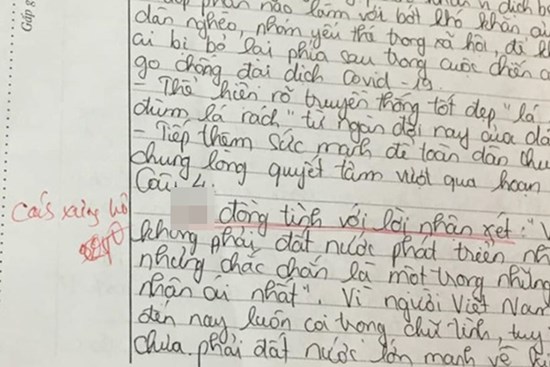 phần nào làm vơi bớt khó khăn
dân nghèo, nhóm yếu thế trong xã hội, để
ai bị bỏ lại phía sau trong cuộc chiến
go chống đại dịch covid-19.
- Thể hiện rõ truyền thống tốt đẹp "lá
đùm lá rách" từ ngàn đời nay của
- Tiếp thêm sức mạnh để toàn dân
chung lòng quyết tâm vượt qua hoạn
Câu 4.
đồng tình với lời nhận xét: "V
Cách xưng hô
không phải đất nước phát triển
nhưng chắc chắn là một trong những
nhân ái nhất". Vì người Việt Nam
đến nay luôn coi trọng chữ tình, tuy
chưa phải đất nước lớn mạnh về